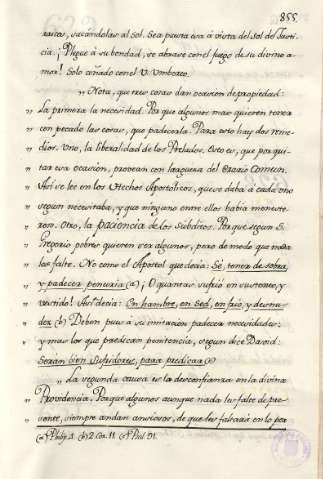 855.
rarlos, sacandolas al sol. Sea pura era á vista del Sol de Justi-
cia. ¡Plegue á su bondad, se abrase con el fuego de su divino a-
mor! Solo añado con el V. Umbozco.
" Nota, que tres cosas dan ocasion de propiedad:
" La primera la necesidad. Porque algunos mas quieren tener
" con pecado las cosas, que padecerla. Para esto hay dos reme-
" dios. Uno, la liberalidad de los Prelados. Esto es, que por qui-
" tar esa ocasión, provean con larguera del Erario Comun.
" Asi se lee en los Hechos Apostolicos, que se daba á cada uno
" segun necesitaba, y que ninguno entre ellos habia menester
" rem. Otro, la paciencia de los Subditos. Porque segun S.
" Gregorio pobres quieren ser algunos, pero de modo que nada
" les falte. No como el Apostol que decia: Sé, tener de sobra,
" y padecer penuria (a) ¡O quantas sufrió en sustento, y
" vestido! Asi decia: En hambre, en sed, en frio, y desnu-
" dez (b) Deben pues á su imitación padecer necesidades:
" y mas los que predican penitencia, segun dice David:
" Seran bien sufridores, para predicar (c)
" La segunda causa es la desconfianza en la divina
" Providencia. Porque algunos aunque nada les falte de pre-
" sente, siempre andan ansiosos, de que les faltará en lo por
(a) Philip. 4. (b) 2 Cor. 11. (c) Psal. 91.